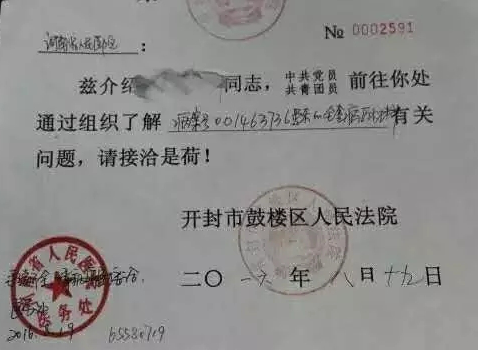 № 0002591
河南省人民医院：
兹介绍 同志，中共党员 共青团员 前往你处
通过组织了解 病案号001463736 有关
问题，请接洽是荷！
开封市鼓楼区人民法院
二〇一六年八月十九日
省人民医
医务处
2016.8.19 65580719